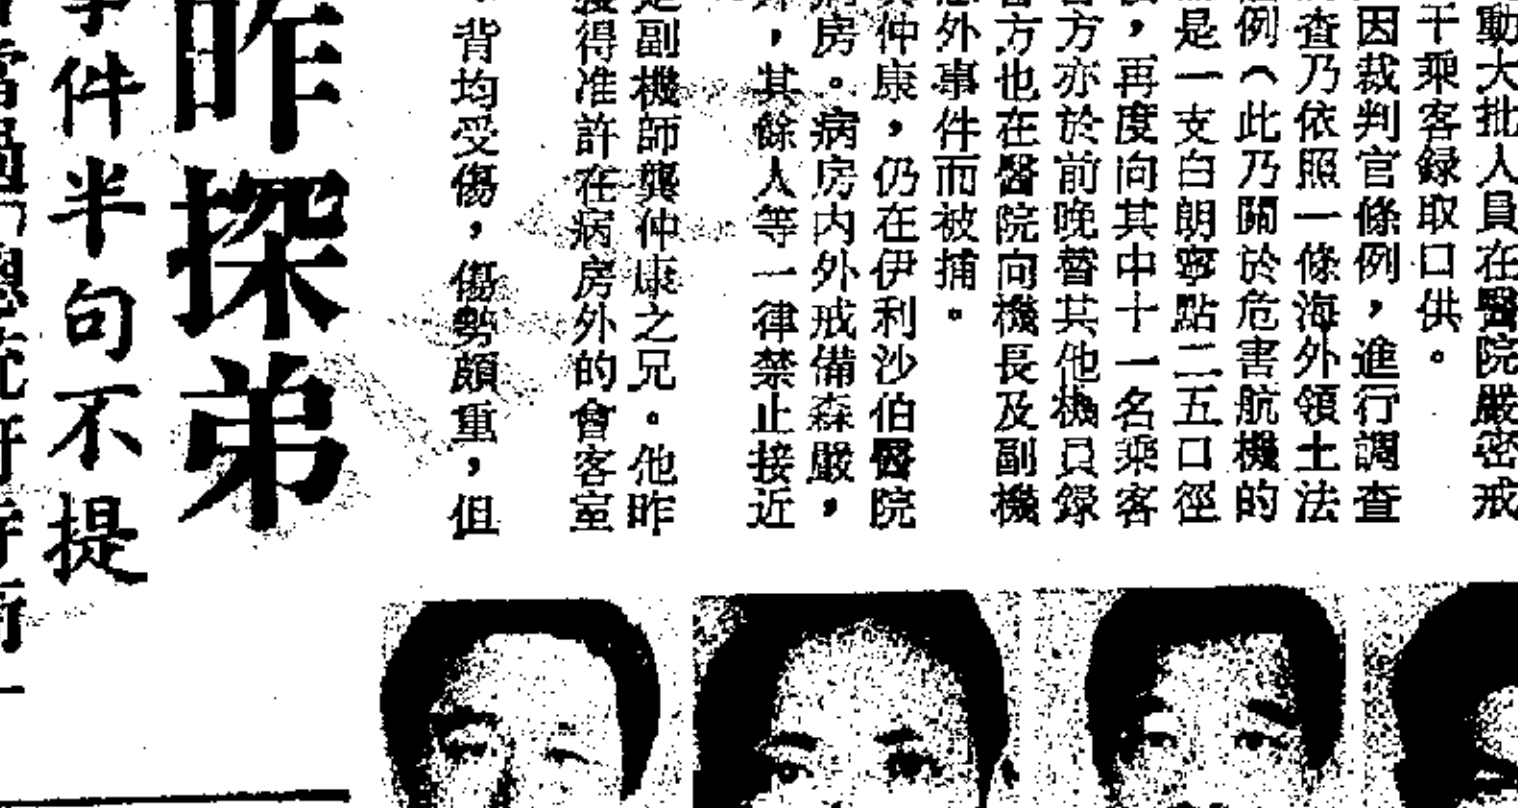 動大批人員在醫院嚴密戒
干乘客録取口供。
因裁判官條例，進行調查
查乃依照一條海外領土法
例（此乃關於危害航機的
是一支白朗寧點二五口徑
，再度向其中十一名乘客
方亦於前晚替其他機員録
方也在醫院向機長及副機
外事件而被捕。
仲康，仍在伊利沙伯醫院
房。病房内外戒備森嚴，
，其餘人等一律禁止接近
副機師龔仲康之兄。他昨
得准許在病房外的會客室
背均受傷，傷勢頗重，但
昨探弟
件半句不提